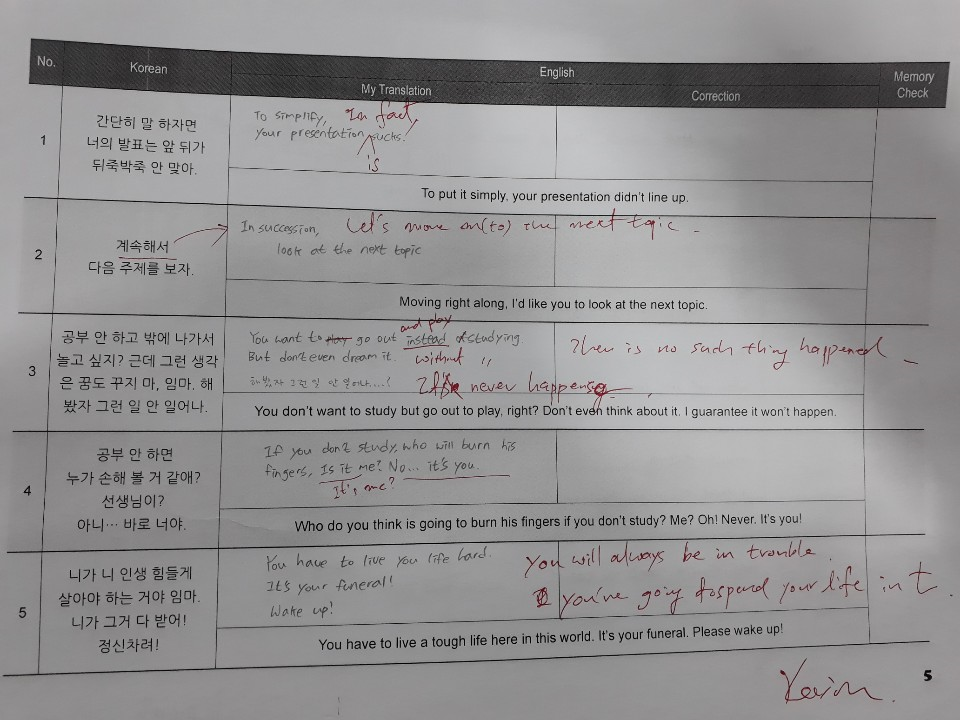 No.
Korean
English
Memory
Check
My Translation
Correction
1
간단히 말 하자면
너의 발표는 앞 뒤가
뒤죽박죽 안 맞아.
To simplify, In fact,
your presentation sucks.
is
To put it simply, your presentation didn't line up.
2
계속해서
다음 주제를 보자.
In succession, Let's move on(to) the next topic.
look at the next topic
Moving right along, I'd like you to look at the next topic.
3
공부 안 하고 밖에 나가서
놀고 싶지? 근데 그런 생각
은 꿈도 꾸지 마, 임마. 해
봤자 그런 일 안 일어나.
and play
You want to play go out instead of studying
But don't even dream it. without "
해봤자 그런 일 안 일어나....!
never happens
There is no such thing happened
You don't want to study but go out to play, right? Don't even think about it. I guarantee it won't happen.
4
공부 안 하면
누가 손해 볼 거 같애?
선생님이?
아니… 바로 너야.
If you don't study, who will burn his
fingers, Is it me? No... it's you.
It's me?
Who do you think is going to burn his fingers if you don't study? Me? Oh! Never. It's you!
5
니가 니 인생 힘들게
살아야 하는 거야 임마.
니가 그거 다 받어!
정신차려!
You have to live you life hard.
It's your funeral!
Wake up!
You will always be in trouble.
you've going to spend your life in t.
You have to live a tough life here in this world. It's your funeral. Please wake up!
5